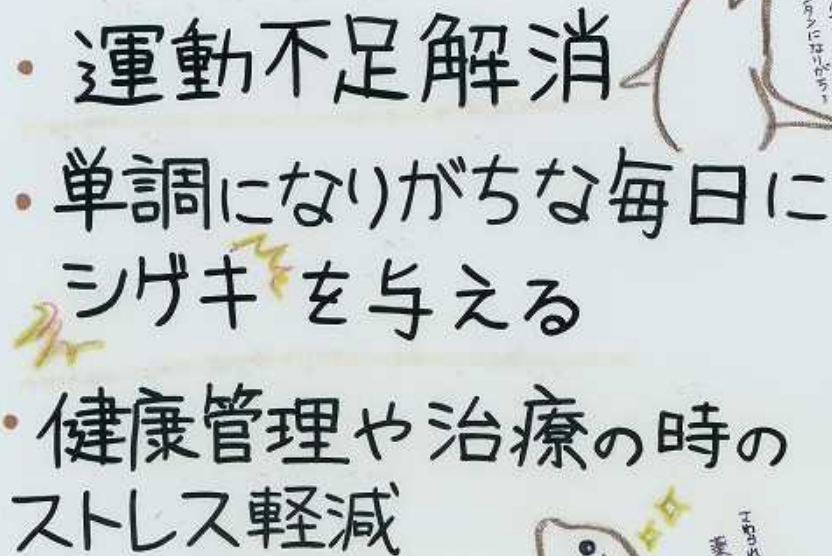 ・運動不足解消
・単調になりがちな毎日に
シゲキを与える
・健康管理や治療の時の
ストレス軽減